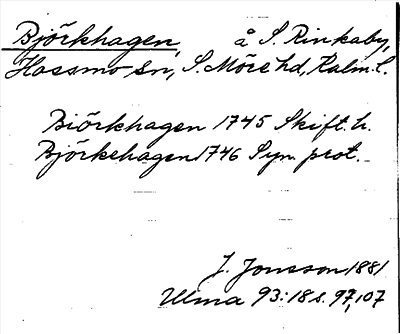 Björkhagen, å S. Rinkaby,
Hossmo sn, S. Möre hd, Kalm. l.
Biörkhagen 1745 Skift. h.
Björkehagen 1746 Syn. prot.
J. Jonsson 1881
Ulma 93:18 s. 97, 107